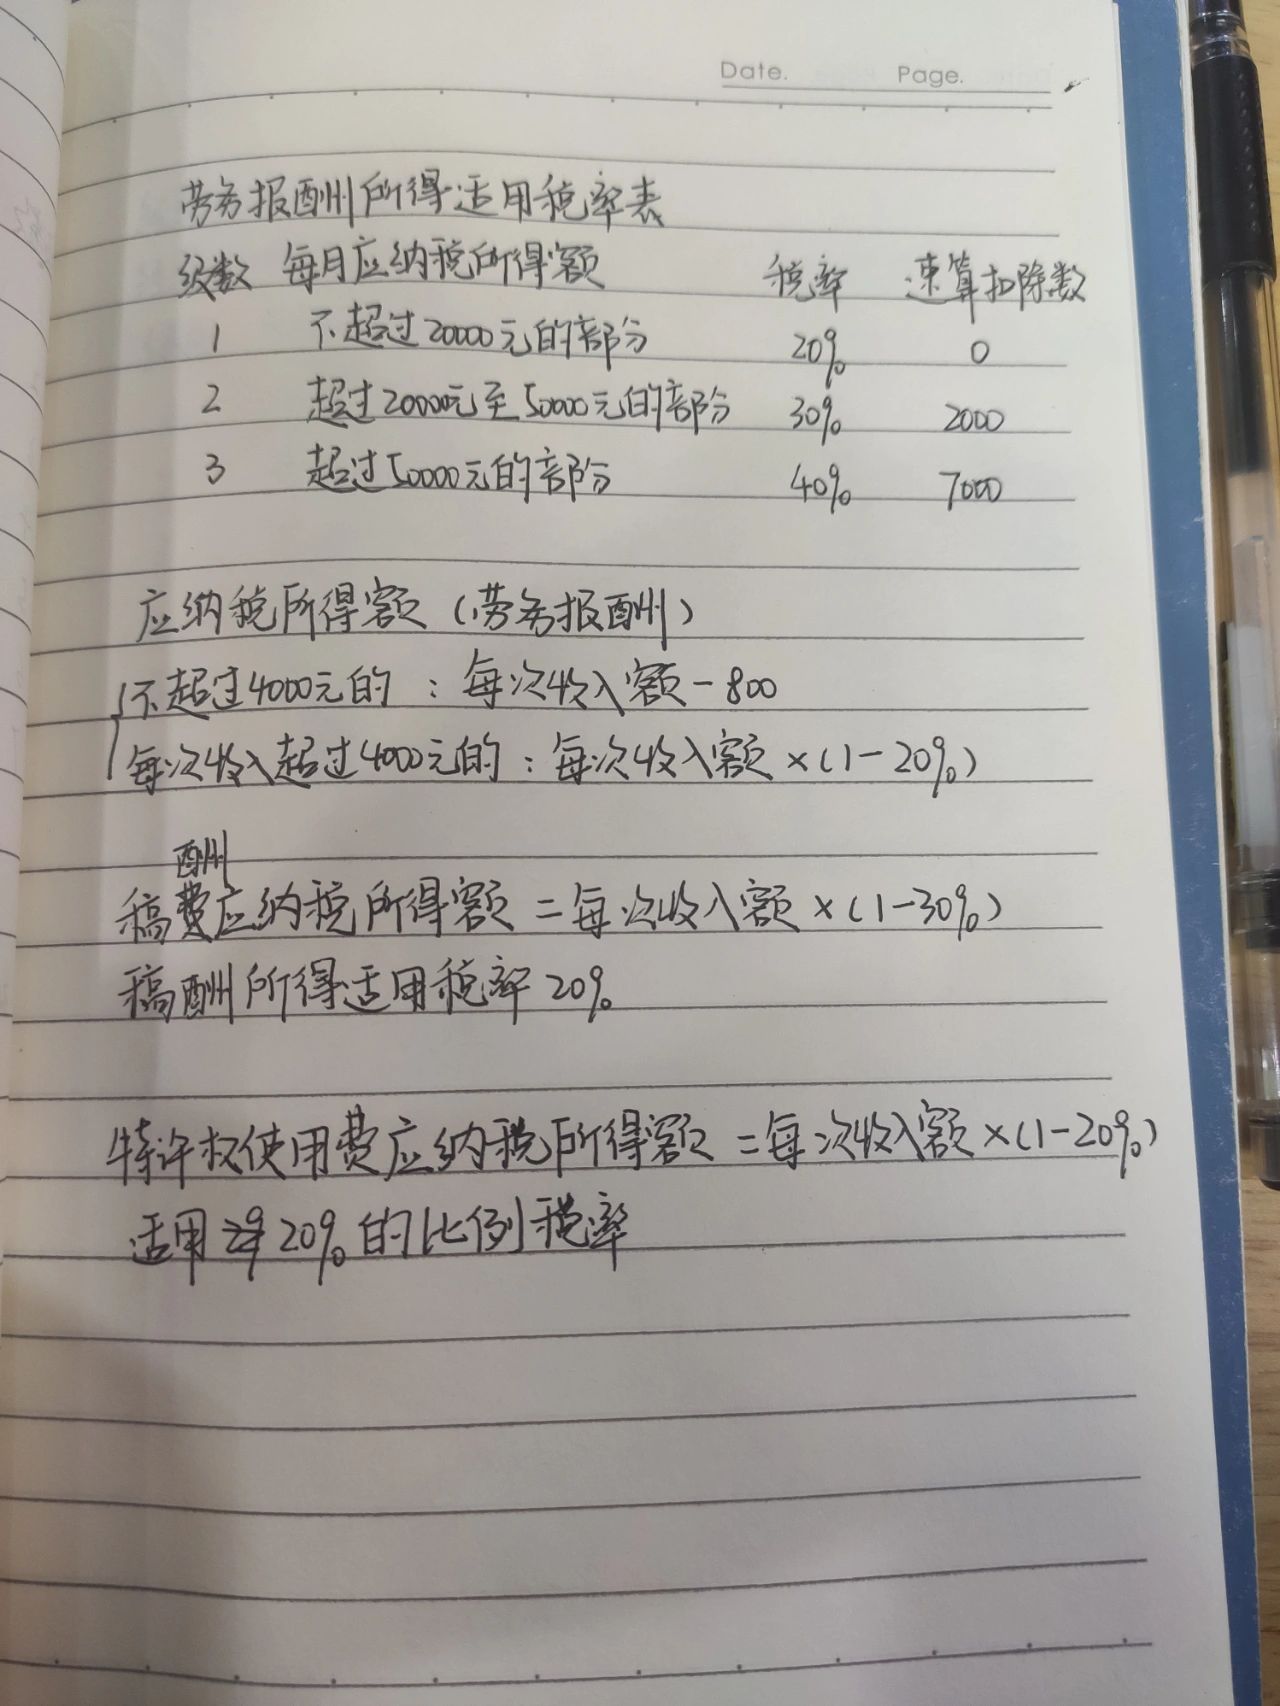 Date. Page.
劳务报酬所得适用税率表
级数 每月应纳税所得额 税率 速算扣除数
1 不超过20000元的部分 20% 0
2 超过20000元至50000元的部分 30% 2000
3 超过50000元的部分 40% 7000
应纳税所得额(劳务报酬)
不超过4000元的：每次收入额-800
每次收入超过4000元的：每次收入额×(1-20%)
酬
稿费应纳税所得额=每次收入额×(1-30%)
稿酬所得适用税率20%
特许权使用费应纳税所得额=每次收入额×(1-20%)
适用20%的比例税率